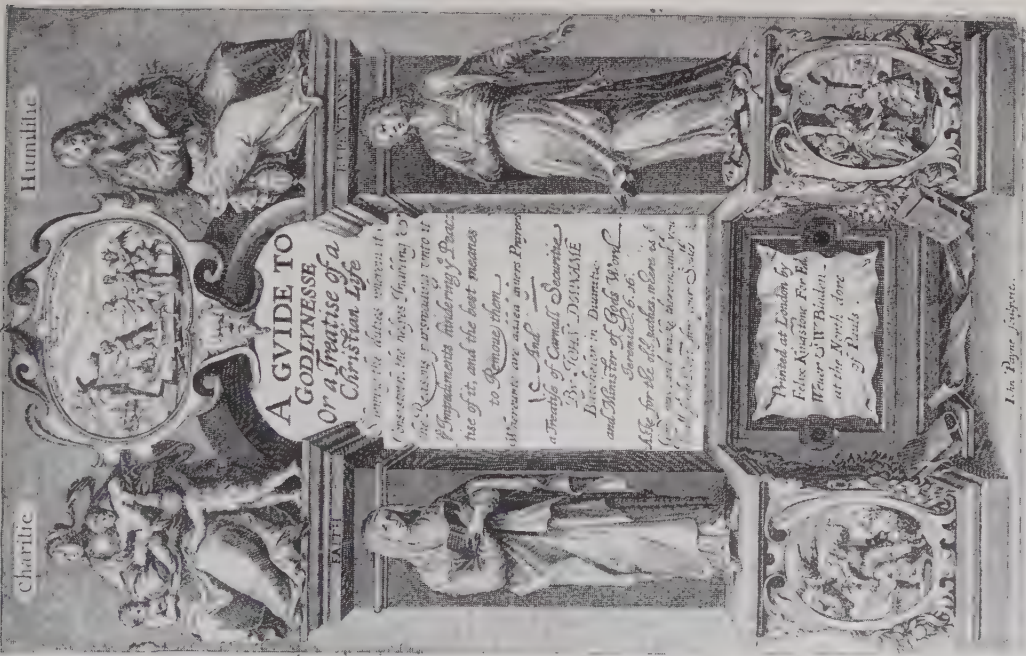 Charitie
Humilitie
FAITH
REPENTANC
A GVIDE TO
GODLYNESSE
Or a Treatise of a
Christian Life
the duties
the helpes
the Reasons
yͤ Impediments hindering yͤ Prac:
tise of it, and the best meanes
to Remoue them
Whereunto are added diuers Prayers
And
a Treatise of Carnall Securitie
By IOHN DOWNAME
Batcheler in Diuinitie
and Minister of Gods Word
Aske for the old pathes, where is
Printed at London by
Felix Kingstone For Ed:
Weuer & W: Bladen
at the North dore
of Pauls
Iohn Payne sculpsit.